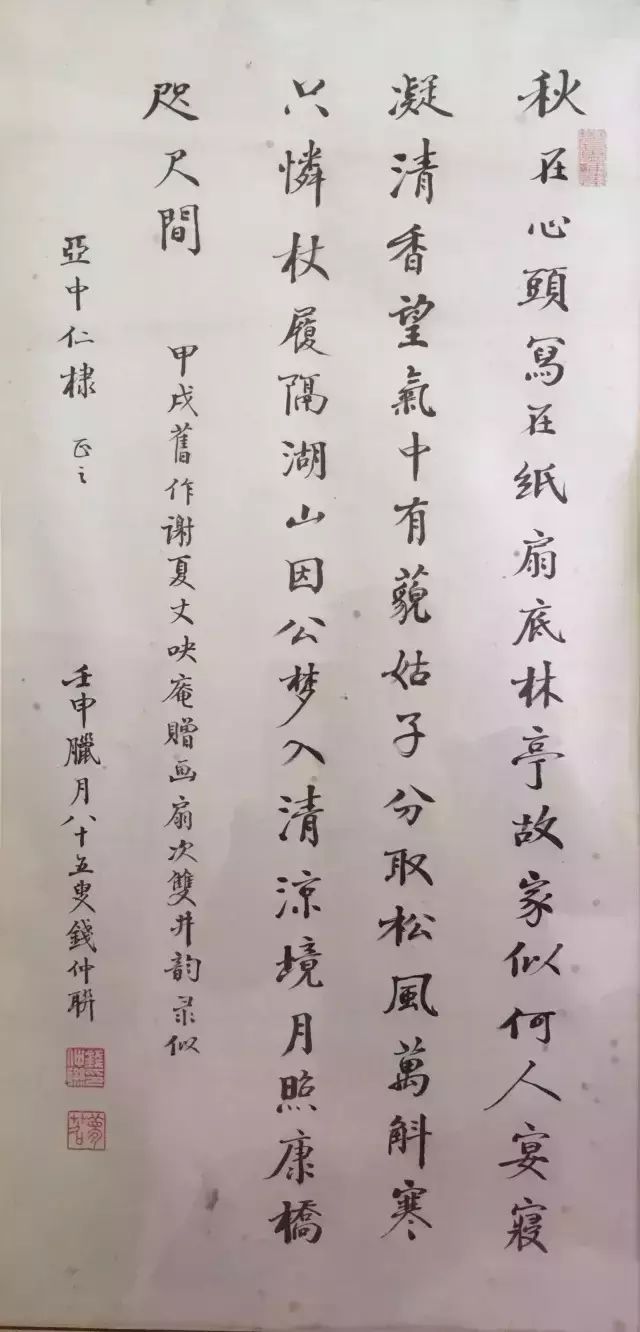 秋在心頭寫在紙扇底林亭故家似何人宴寢
凝清香望氣中有藐姑子分取松風萬斛寒
只憐杖履隔湖山因公梦入清涼境月照康橋
咫尺間
甲戌舊作謝夏丈吷庵贈画扇次雙井韵录似
亞中仁棣 正之
壬申臘月八十五叟錢仲聯